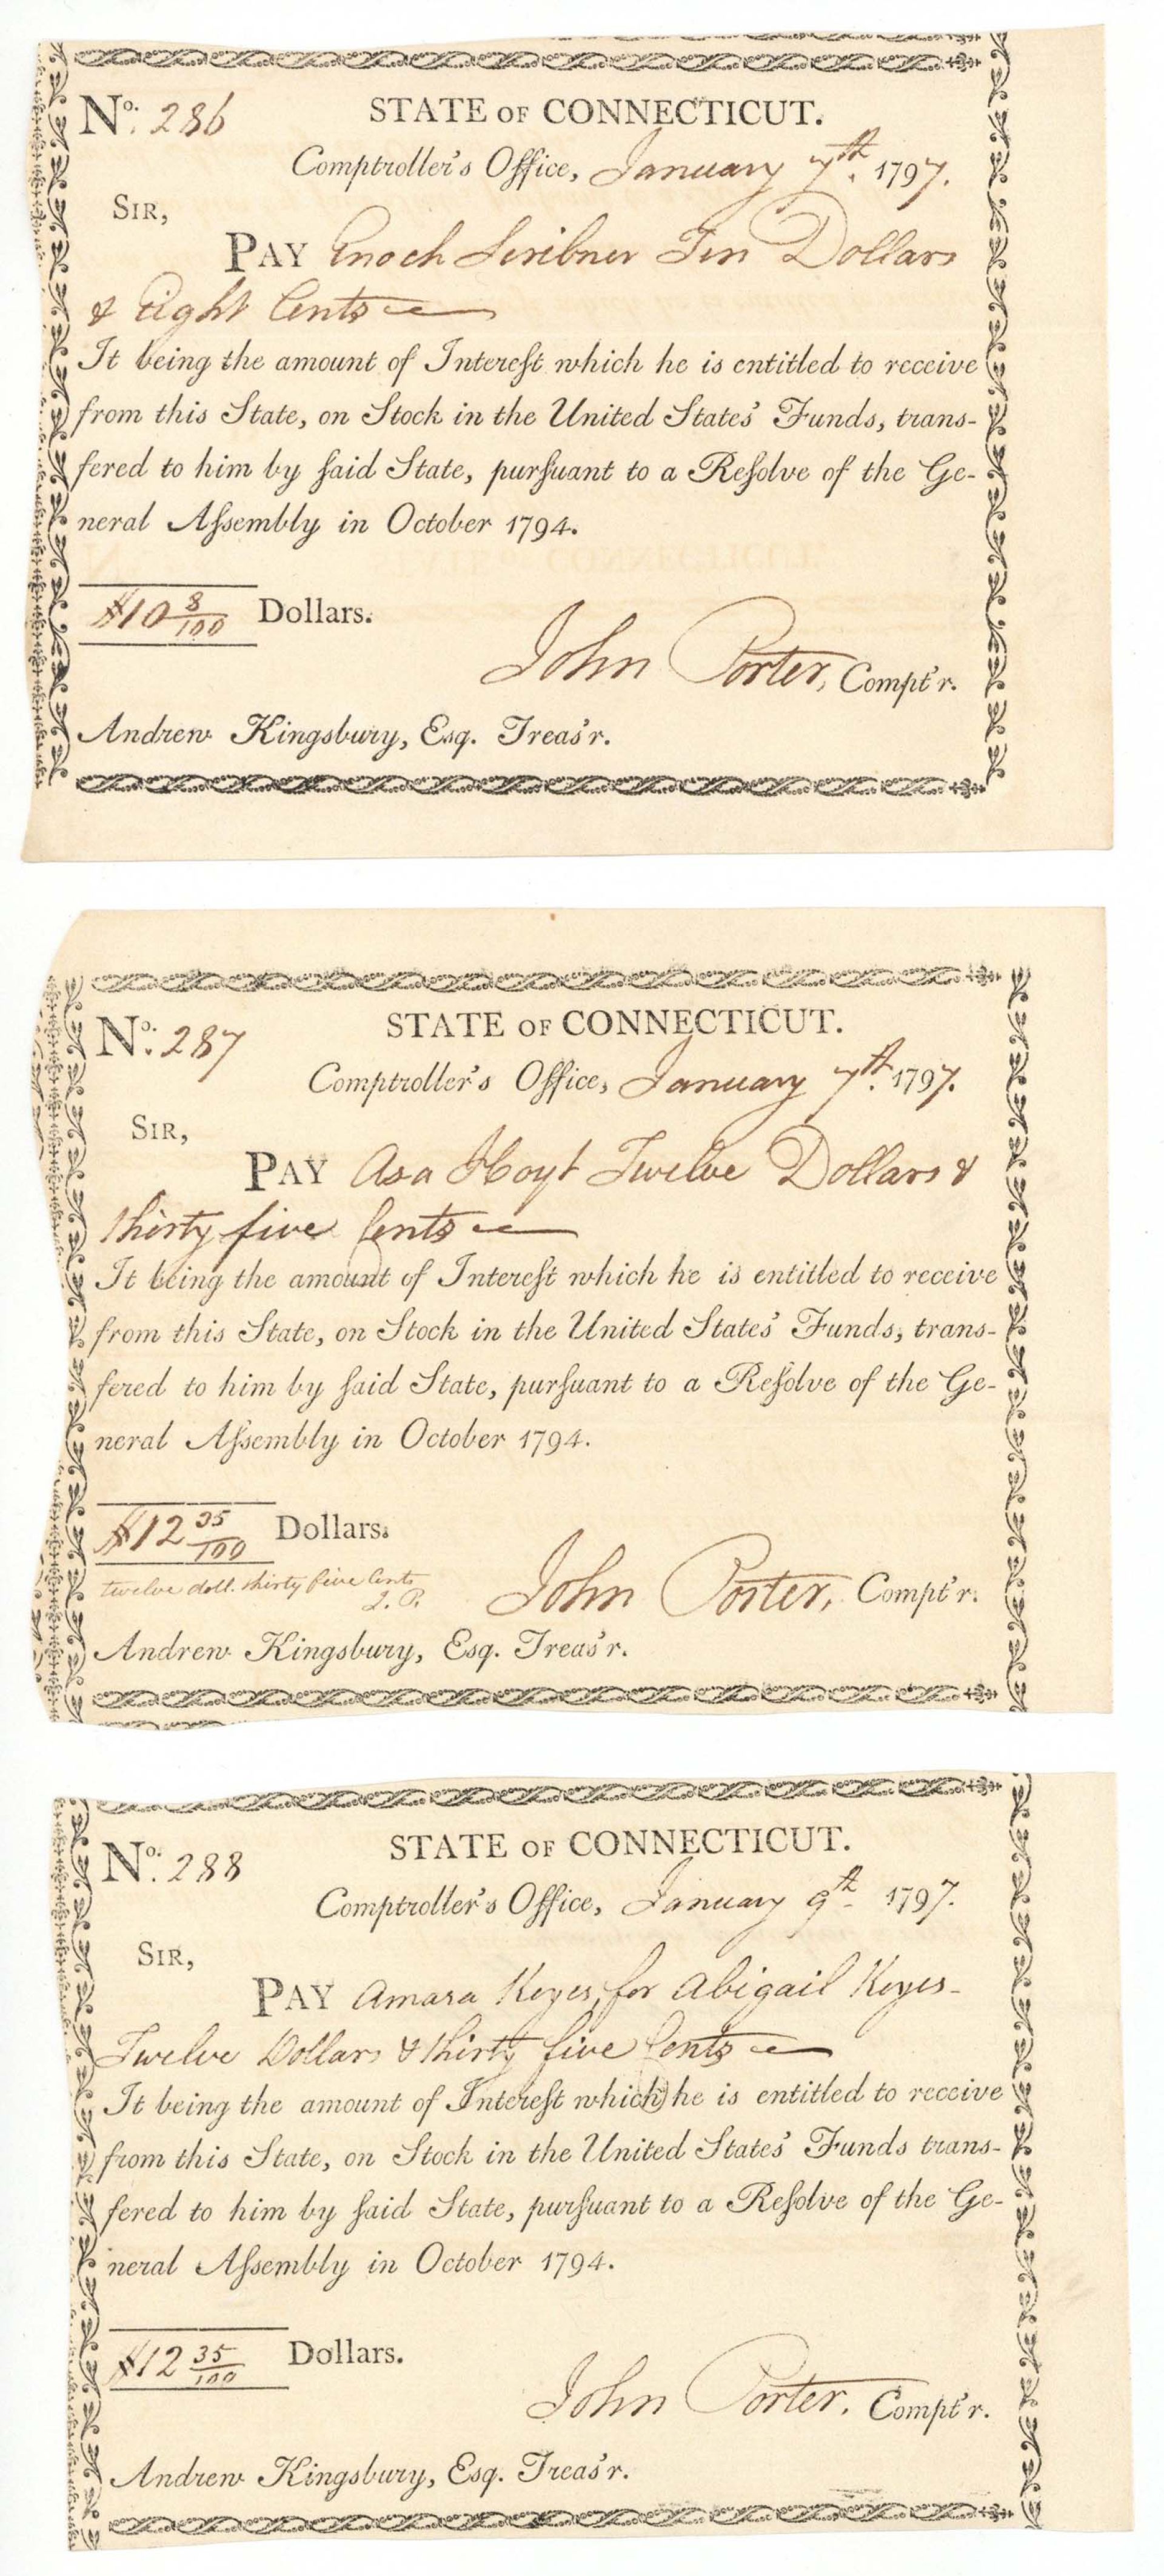 No: 286 STATE OF CONNECTICUT.
Comptroller's Office, January 7th. 1797.
SIR,
PAY Enoch Scribner Ten Dollars
& Eight Cents
It being the amount of Intereſt which he is entitled to receive
from this State, on Stock in the United States' Funds, trans-
fered to him by ſaid State, purſuant to a Reſolve of the Ge-
neral Aſsembly in October 1794.
$10 8/100 Dollars.
John Porter, Compt'r.
Andrew Kingsbury, Esq. Treas'r.
No: 287 STATE OF CONNECTICUT.
Comptroller's Office, January 7th. 1797.
SIR,
PAY Asa Hoyt Twelve Dollars &
thirty five Cents
It being the amount of Intereſt which he is entitled to receive
from this State, on Stock in the United States' Funds, trans-
fered to him by ſaid State, purſuant to a Reſolve of the Ge-
neral Aſsembly in October 1794.
$12 35/100 Dollars.
twelve doll. thirty five Cents
J. P.
John Porter, Compt'r.
Andrew Kingsbury, Esq. Treas'r.
No: 288 STATE OF CONNECTICUT.
Comptroller's Office, January 9th. 1797.
SIR,
PAY Amasa Keyes, for Abigail Keyes-
Twelve Dollars & thirty five Cents
It being the amount of Intereſt which he is entitled to receive
from this State, on Stock in the United States' Funds trans-
fered to him by ſaid State, purſuant to a Reſolve of the Ge-
neral Aſsembly in October 1794.
$12 35/100 Dollars.
John Porter, Compt'r.
Andrew Kingsbury, Esq. Treas'r.